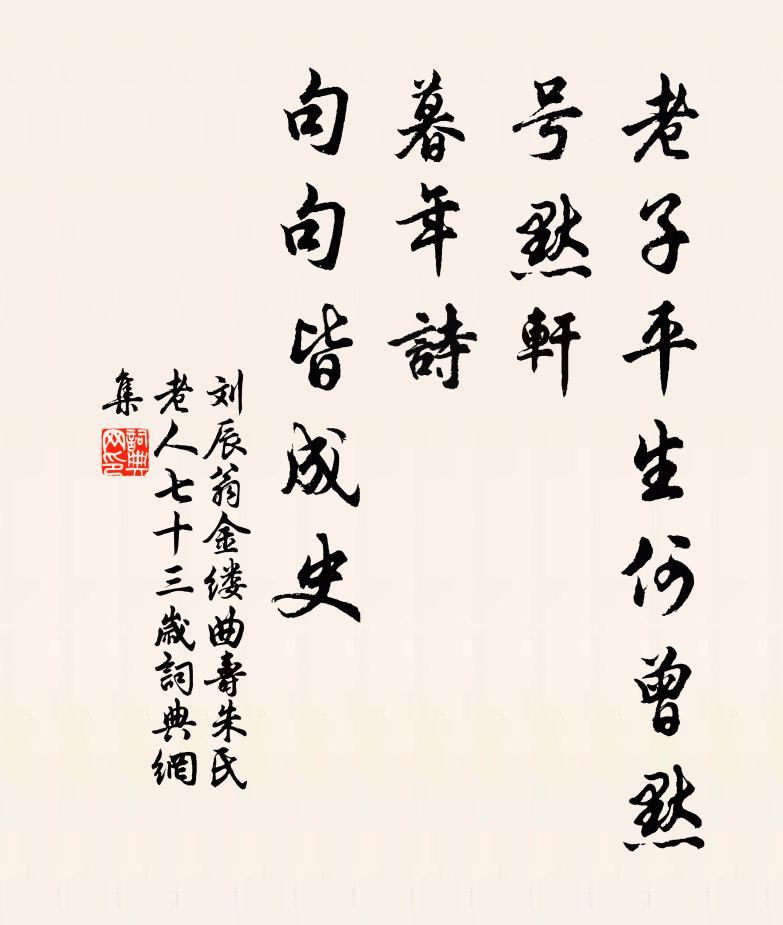 老子平生何曾默
号默軒
暮年詩
句句皆成史
刘辰翁金缕曲壽朱氏
老人七十三歲詞典網
集
詞典网印